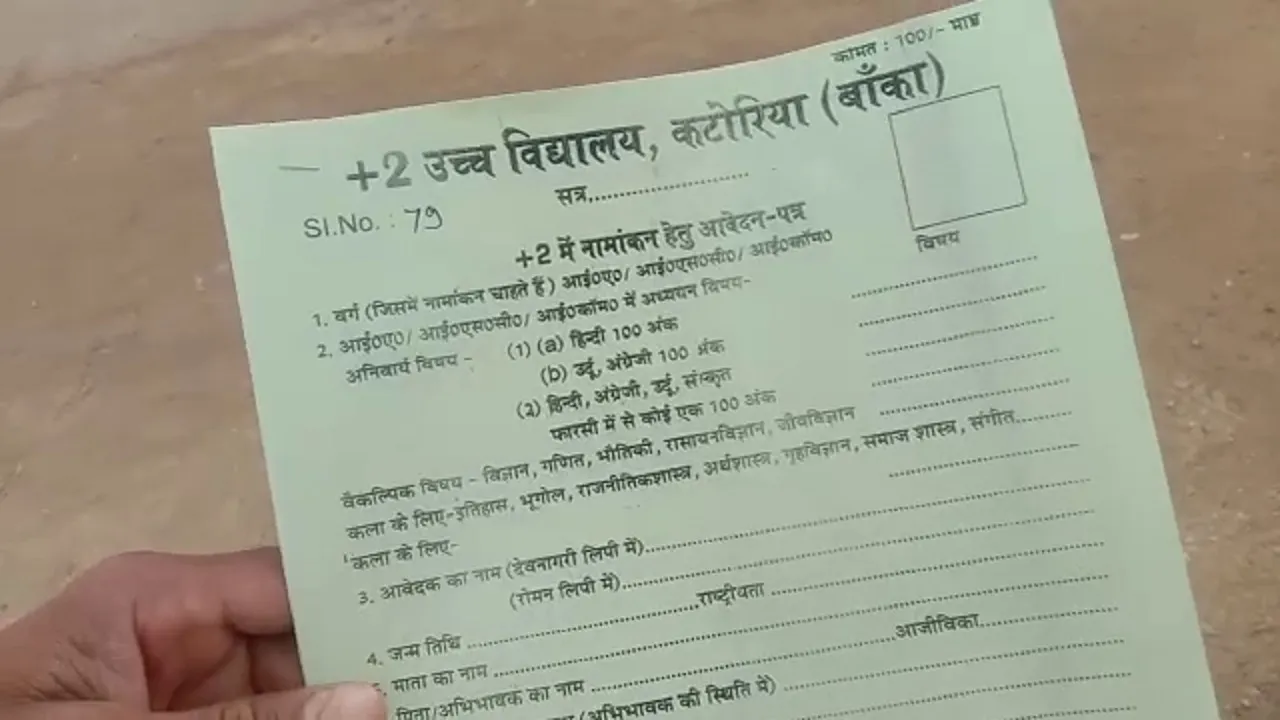 कीमत : 100/- मात्र
+2 उच्च विद्यालय, कटोरिया (बाँका)
सत्र,..........................
SI.No. : 79
+2 में नामांकन हेतु आवेदन-पत्र
विषय
1. वर्ग (जिसमें नामांकन चाहते हैं) आई०ए०/ आई०एस०सी०/ आई०कॉम०
2. आई०ए०/ आई०एस०सी०/ आई०कॉम० में अध्ययन विषय-
अनिवार्य विषय - (1) (a) हिन्दी 100 अंक
(b) उर्दू, अंग्रेजी 100 अंक
(2) हिन्दी, अंग्रेजी, उर्दू, संस्कृत
फारसी में से कोई एक 100 अंक
वैकल्पिक विषय - विज्ञान, गणित, भौतिकी, रासायनविज्ञान, जीवविज्ञान
कला के लिए-इतिहास, भूगोल, राजनीतिकशास्त्र, अर्थशास्त्र, गृहविज्ञान, समाज शास्त्र, संगीत..........
कला के लिए-
3. आवेदक का नाम (देवनागरी लिपी में)..........................
(रोमन लिपी में)..........................
4. जन्म तिथि ..........................राष्ट्रीयता ..........................
माता का नाम ..........................
पिता/अभिभावक का नाम ..........................आजीविका..........................
(अभिभावक की स्थिति में) ..........................